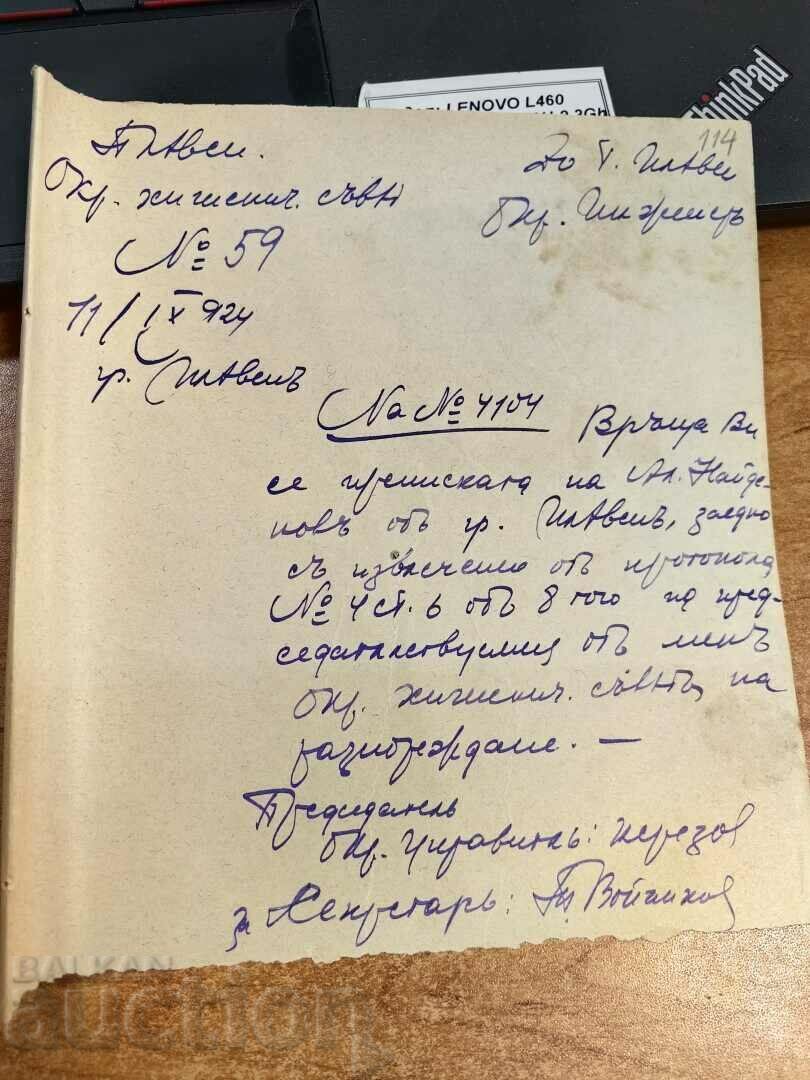 LENOVO L460
ThinkPad
114
Плавен.
Окр. хигиенич. съвет
№ 59
11 / IX 924
гр. Плевенъ
До Г. Плевен
Окр. Инженеръ
На № 4104
Връща Ви
се преписката на Ал. Найде-
новъ отъ гр. Плевенъ, заедно
съ извлечение отъ протокола
№ 4 ст. 6 отъ 8 того на пред-
седателствуемия отъ менъ
Окр. хигиенич. съветъ на
разпореждане. —
Председатель
Окр. Управитель:
за Секретарь:
BALKAN
auction